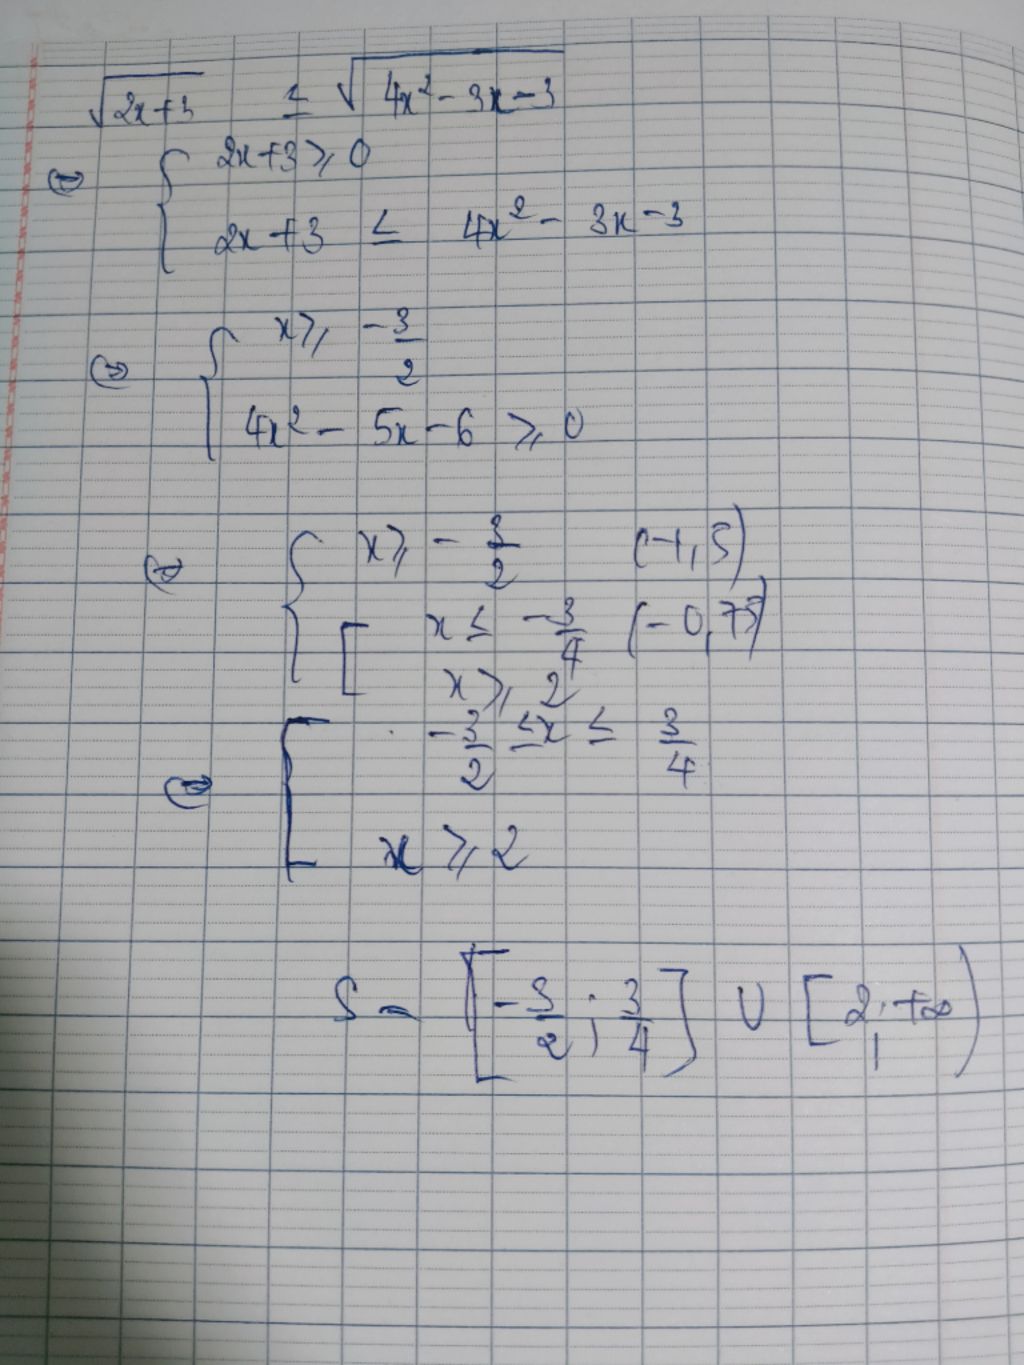 √(2x+3) ≤ √(4x² - 3x - 3)
⇔ { 2x+3 ≥ 0
2x+3 ≤ 4x² - 3x - 3
⇔ { x ≥ -3/2
4x² - 5x - 6 ≥ 0
⇔ { x ≥ -3/2 (-1,5)
[ x ≤ -3/4 (-0,75)
x ≥ 2
⇔ [ -3/2 ≤ x ≤ 3/4
x ≥ 2
S = [-3/2 ; 3/4] ∪ [2 ; +∞)